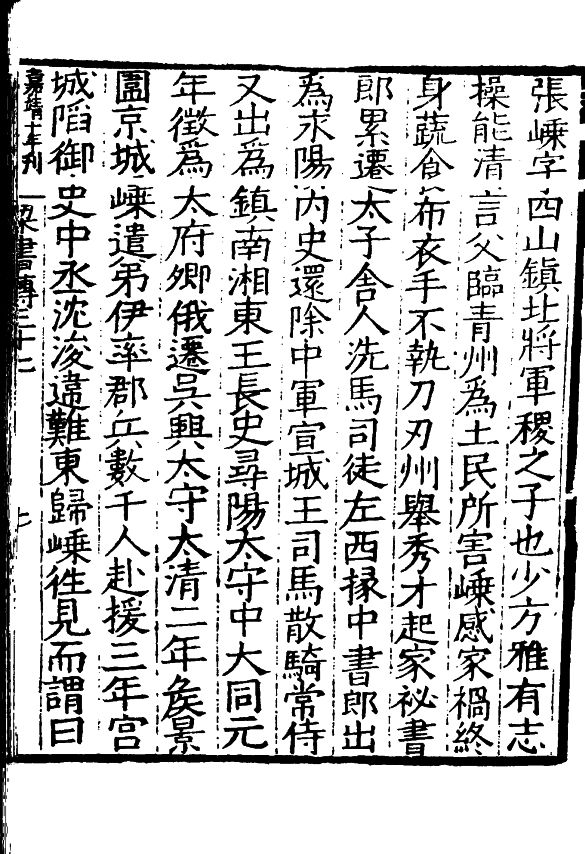 張嵊字四山鎮北將軍稷之子也少方雅有志
操能清言父臨青州爲土民所害嵊感家禍終
身蔬食布衣手不執刀刃州舉秀才起家祕書
郎累遷太子舍人洗馬司徒左西掾中書郎出
爲永陽內史還除中軍宣城王司馬散騎常侍
又出爲鎮南湘東王長史尋陽太守中大同元
年徵爲太府卿俄遷吳興太守太清二年矦景
圍京城嵊遣弟伊率郡兵數千人赴援三年宮
城陷御史中丞沈浚違難東歸嵊往見而謂曰
嘉靖十年刊
梁書傳三十七